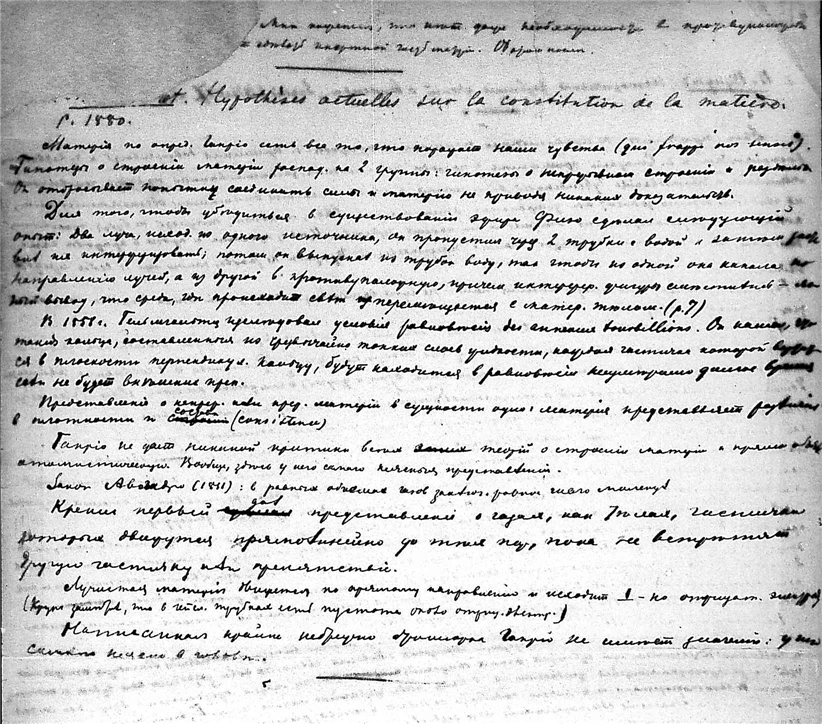 Мне кажется, что нет даже необходимости в
t. Hypothèses actuelles sur la constitution de la matière.
р. 1880.
Материя по опред. Ганрио есть все то, что поражает наши чувства (qui frappe nos sens).
Гипотезы о строении материи распад. на 2 группы: гипотезы о непрерывном строении и
Он отбрасывает попытку соединить силы и материю не приводя никаких доказательств.
Для того, чтобы убедиться в существовании эфира Физо сделал следующий
опыт: Два луча, исход. из одного источника, он пропустил чрез 2 трубки с водой и заставил
их интерферировать; потом он выпускал из трубок воду, так чтобы из одной она текала по
направлению лучей, а из другой в противуположную, причем интерфер. фигуры
вывод, что среда, где происходит свет перемещается с матер. телом. (р. 7)
В 1858 г. Гельмгольтц преследовал условия равновесия des anneaux tourbillons. Он нашел, что
такия кольца, составленныя из чрезвычайно тонких слоев жидкости, каждая частичка которой
ся в плоскости перпендикул. кольцу, будут находиться в равновесии неумтримо долгое время
если не будет внешних преп.
Представления о непрер. или прер. материи в сущности одно: материя представляет различия
в плотности и состав (consistence)
Ганрио не дает никакой критики всех теорий о строении материи и прямо
атомистическую. Вообще, здесь у него самого неясныя представления.
Закон Авогадро (1811): в равных объемах газов заключ. равное число молекул
Крениг первый дал представление о газах, как телах, частички
которых движутся прямолинейно до тех пор, пока не встретят
другую частичку или препятствий.
Лучистая материя движется по прямому направлению и исходит ⊥-но отрицат. электроду
(Крукс заметил, что в гейсл. трубках есть пустота около отриц. электр.)
Написанная крайне небрежно брошюрка Ганрио не имеет значения: у него
самого неясно в голове.